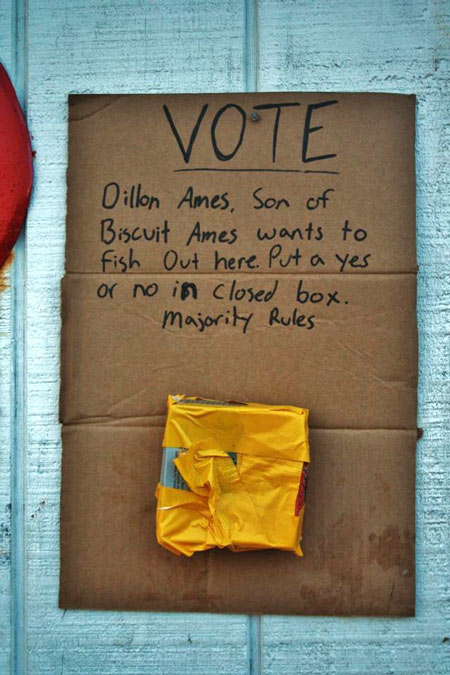 VOTE
Dillon Ames, Son of
Biscuit Ames wants to
fish Out here. Put a yes
or no in closed box.
Majority Rules